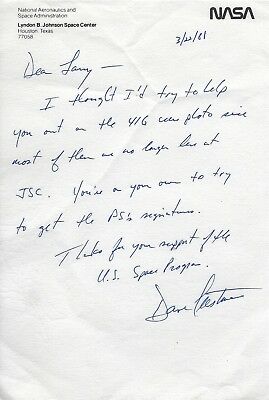 National Aeronautics and
Space Administration
Lyndon B. Johnson Space Center
Houston, Texas
77058
NASA
Dear Larry —
I thought I'd try to help
you out on the 41G crew photo since
most of them are no longer here at
JSC. You're on your own to try
to get the PS's signatures.
Thanks for your support of the
U.S. Space Program.
Dave